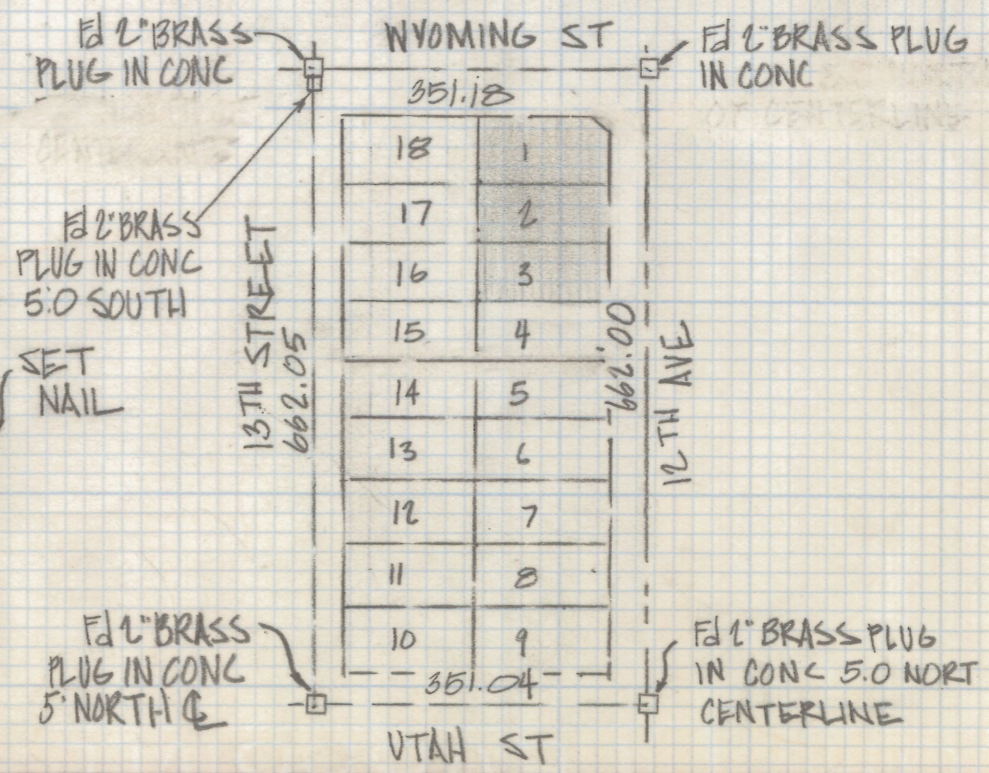 Fd 2" BRASS
PLUG IN CONC
WYOMING ST
Fd 2" BRASS PLUG
IN CONC
OF CENTERLINE
351.18
CENTERLINE
Fd 2" BRASS
PLUG IN CONC
5.0 SOUTH
SET
NAIL
13TH STREET
662.05
18 1
17 2
16 3
15 4
14 5
13 6
12 7
11 8
10 9
662.00
12TH AVE
Fd 2" BRASS
PLUG IN CONC
5' NORTH ℄
351.04
Fd 2" BRASS PLUG
IN CONC 5.0 NORT
CENTERLINE
UTAH ST